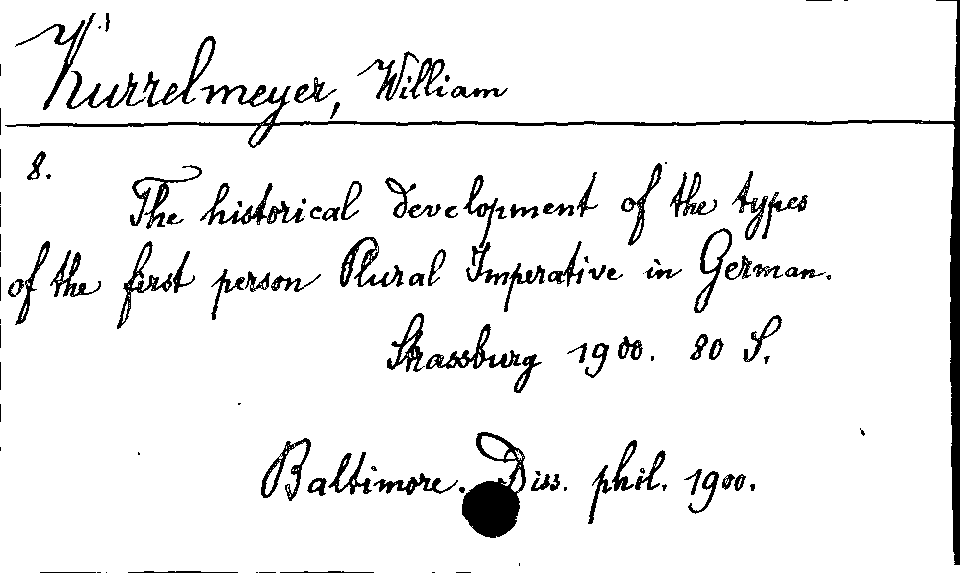 Kurrelmeyer, William
8.
The historical development of the types
of the first person Plural Imperative in German.
Strassburg 1900. 80 S.
Baltimore. Diss. phil. 1900.